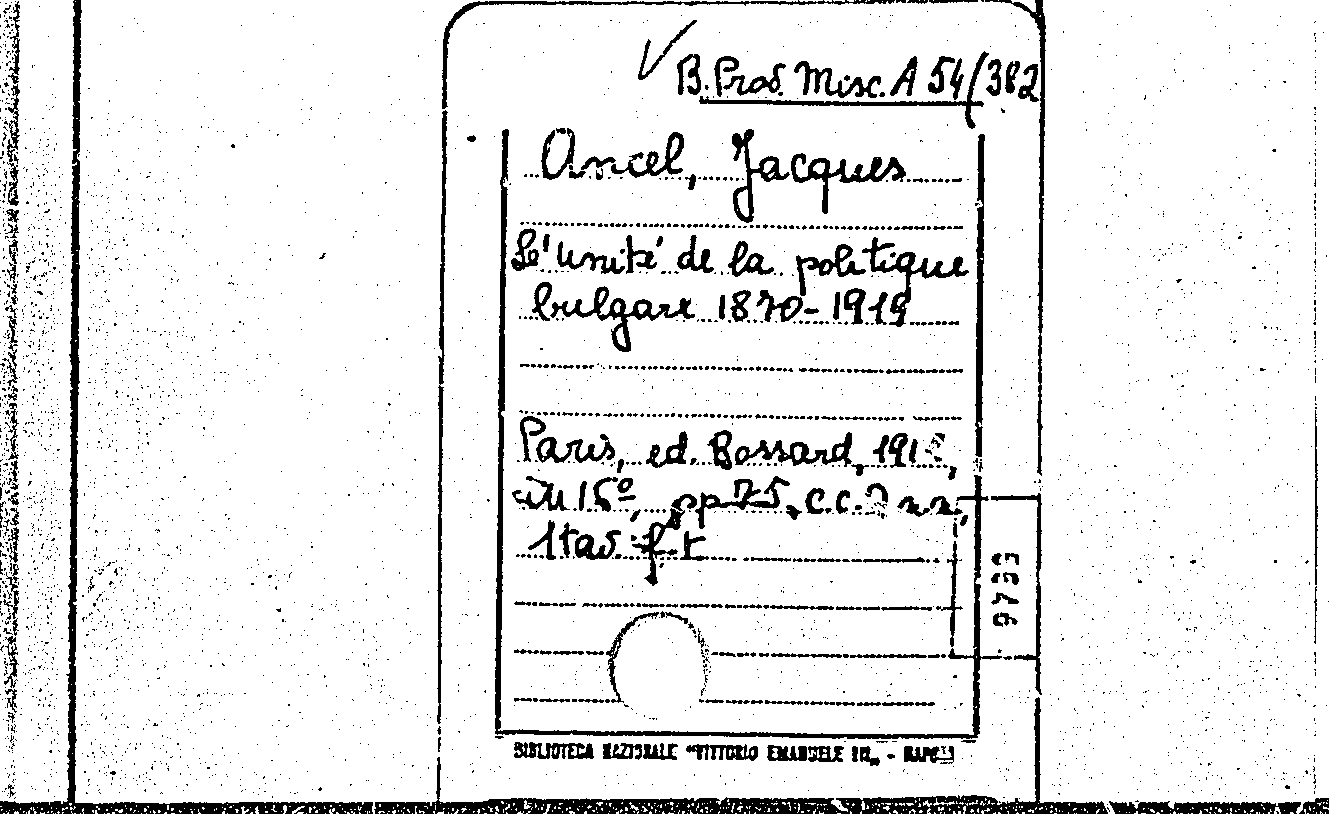 B. Prov. Misc. A 54/382
Ancel, Jacques
L'unité de la politique
bulgare 1870-1919
Paris, ed. Bossard,
in 16º, pp 75, c.c. 2 n.n.,
1 tav. f. t
BIBLIOTECA NAZIONALE "VITTORIO EMANUELE III" - NAPOLI